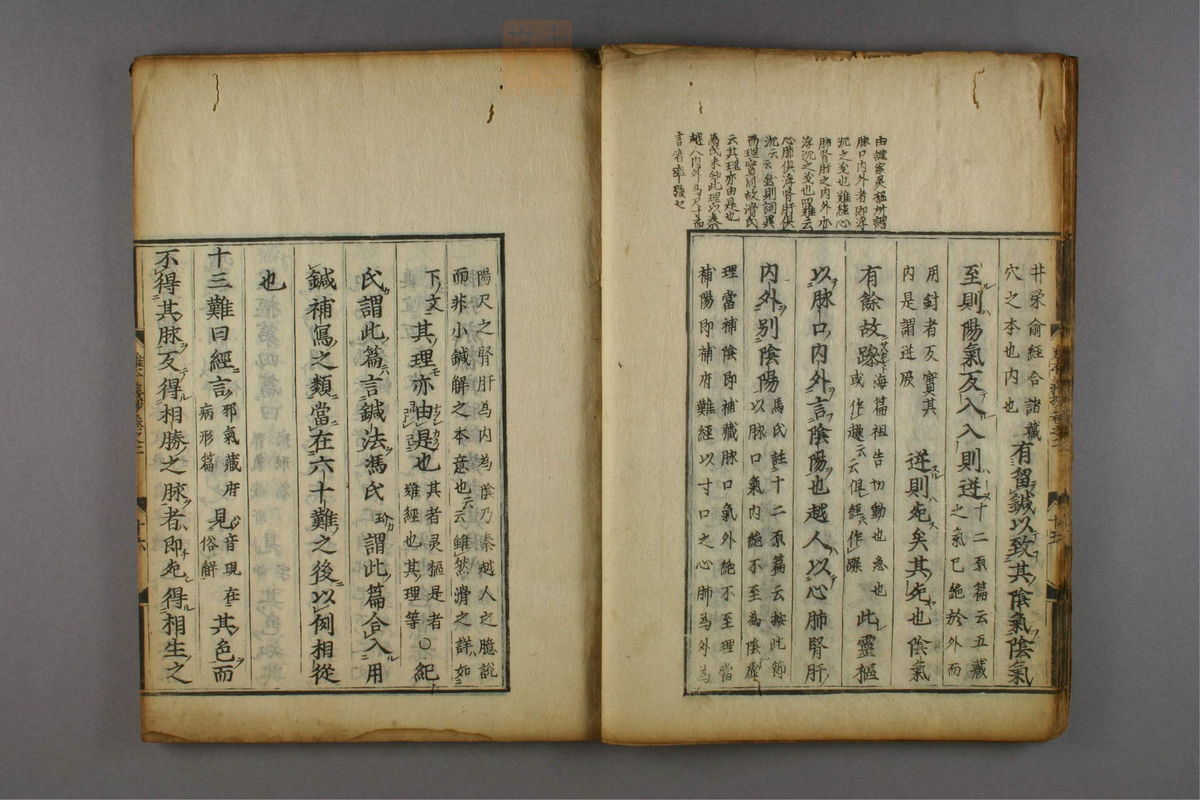 由據家灵樞所謂
脉口内外者即浮
沉之変也難經心
肺腎肝之内外亦
浮沉之変也四難云
心肺俱浮腎肝俱
沉云云然則詞異
而理實同故滑氏
云其理亦由是也
馮氏未知此理以秦
越人内外為尺寸而
言者牽強也
井荣俞經合諸藏
穴之本也内也
有留鍼以致其陰氣陰氣
至則陽氣反入入則逆
十二原篇云五藏
之氣已絶於外而
用針者反實其
内是謂逆厥
逆則死矣其死也陰氣
有餘故躁
海篇祖告切動也急也
或作趮云云俱經作躁
此靈樞
以脉口内外言陰陽也越人以心肺腎肝
内外別陰陽
馬氏註十二原篇云按此節
以脉口氣内絶不至為陰虚
理當補陰即補藏脉口氣外絶不至理當
補陽即補府難經以寸口之心肺為外為
陽尺之腎肝為内為陰乃秦越人之臆說
而非小鍼解之本意也云云雖然滑之詳如
下文
其理亦由是也
其者灵樞是者
難經也其理等
○紀
氏謂此篇言鍼法馮氏玠謂此篇合入用
鍼補瀉之類當在六十難之後以例相從
也
十三難曰經言
邪氣藏府
病形篇
見
音現在
俗解
其色而
不得其脉反得相勝之脉者即死得相生之
十六